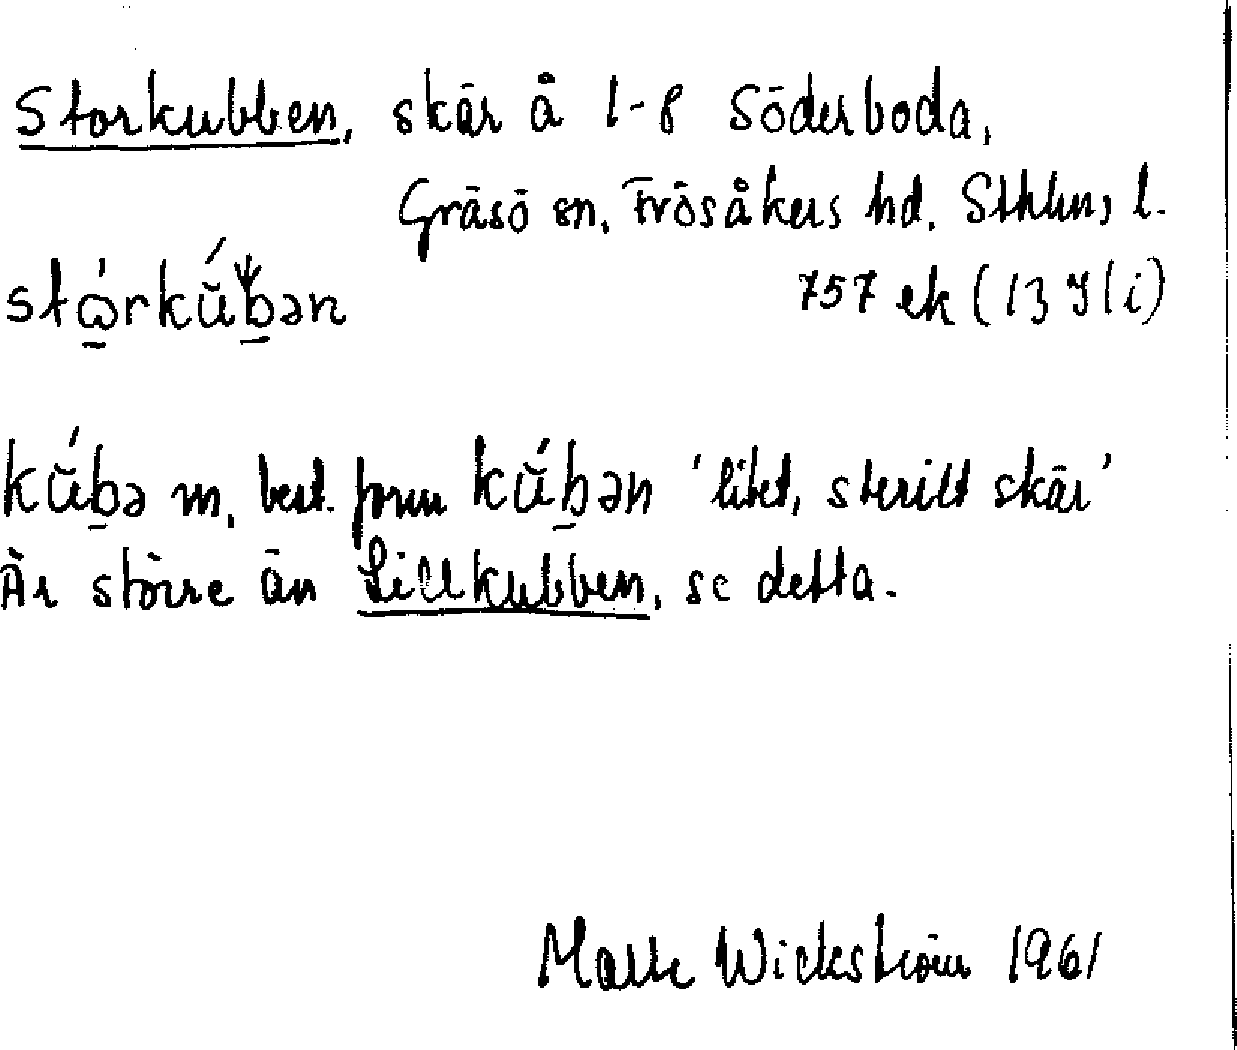 Storkubben, skär å 1-8 Söderboda,
Gräsö sn, Frösåkers hd. Sthlms l.
757 ek (13 I 1 i)
kŭ́b̠ə m, best. form kŭ́b̠ən 'litet, sterilt skär'
Är större än Lillkubben, se detta.
Malte Wickström 1961